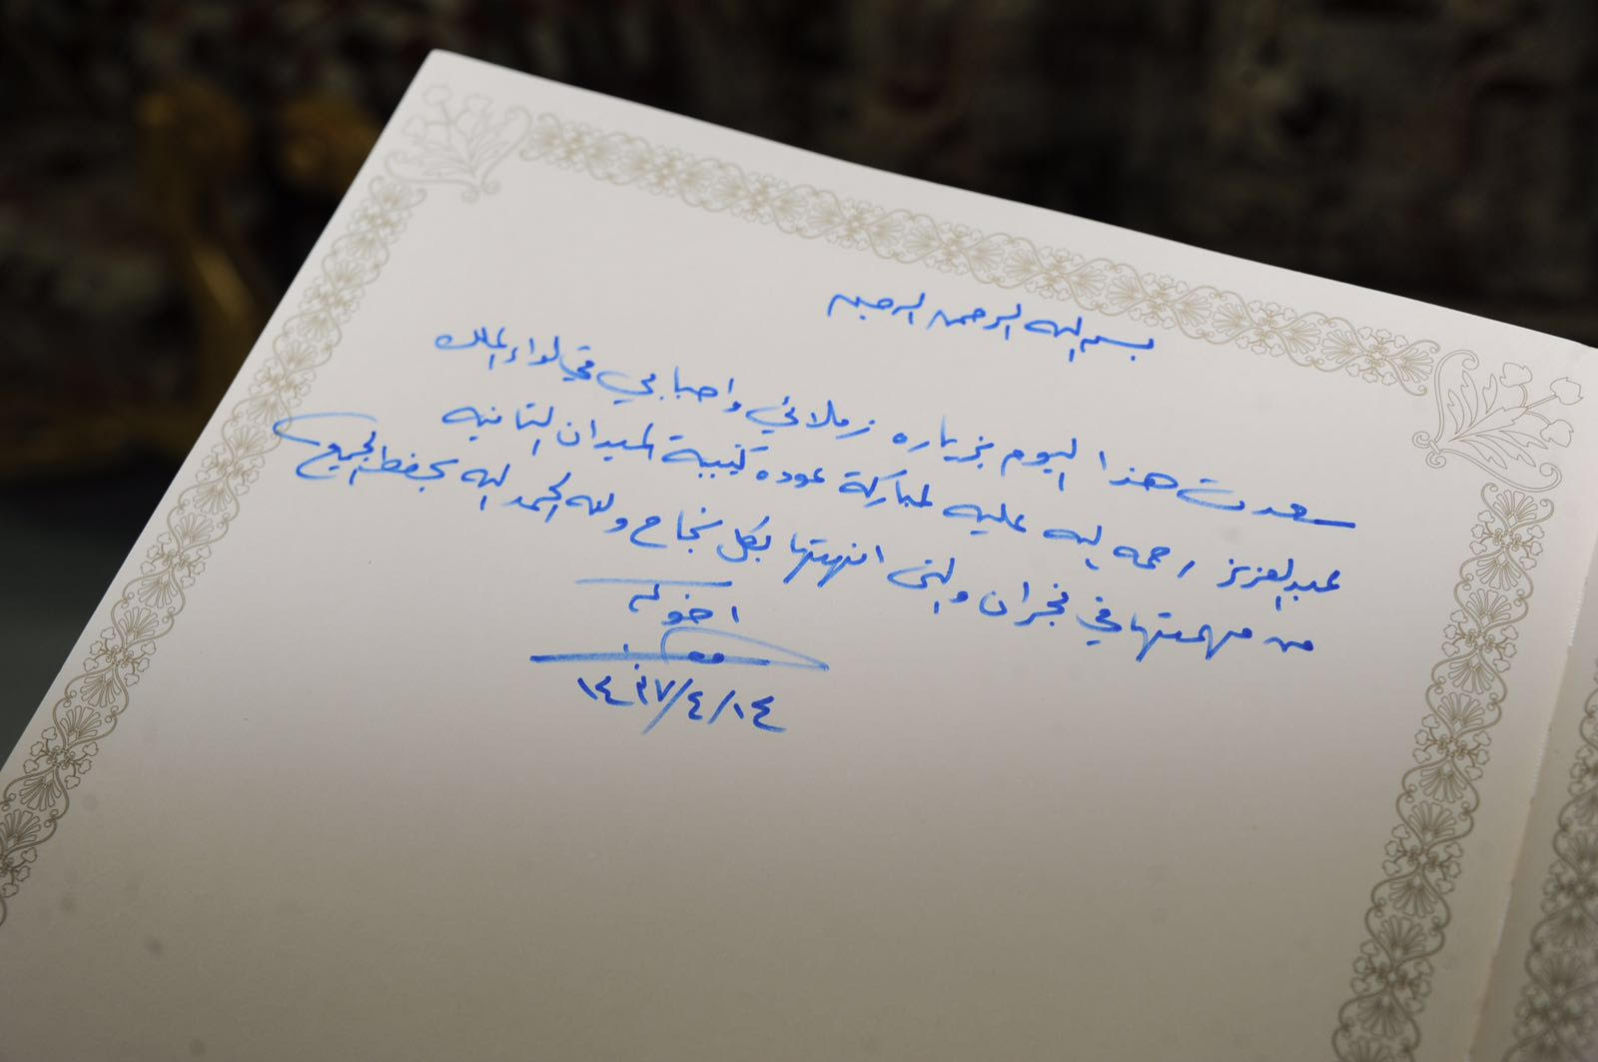 بسم الله الرحمن الرحيم
سعدت هذا اليوم بزياره زملائي واحبابي في لواء الملك
عبدالعزيز رحمه الله عليه لمباركة عوده كتيبة الميدان الثانيه
من مهمتها في نجران والتي انهتها بكل نجاح ولله الحمد الله يحفظ الجميع
اخوكم
١٤٣٧/٤/١٤